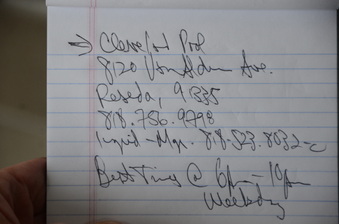 → Cleveland Pool
8120 Vanalden Ave.
Reseda, 91335
818.756.9798
Ingrid - Mgr. 818.523.8032-c
Best Times @ 6pm - 10pm
Weekdays